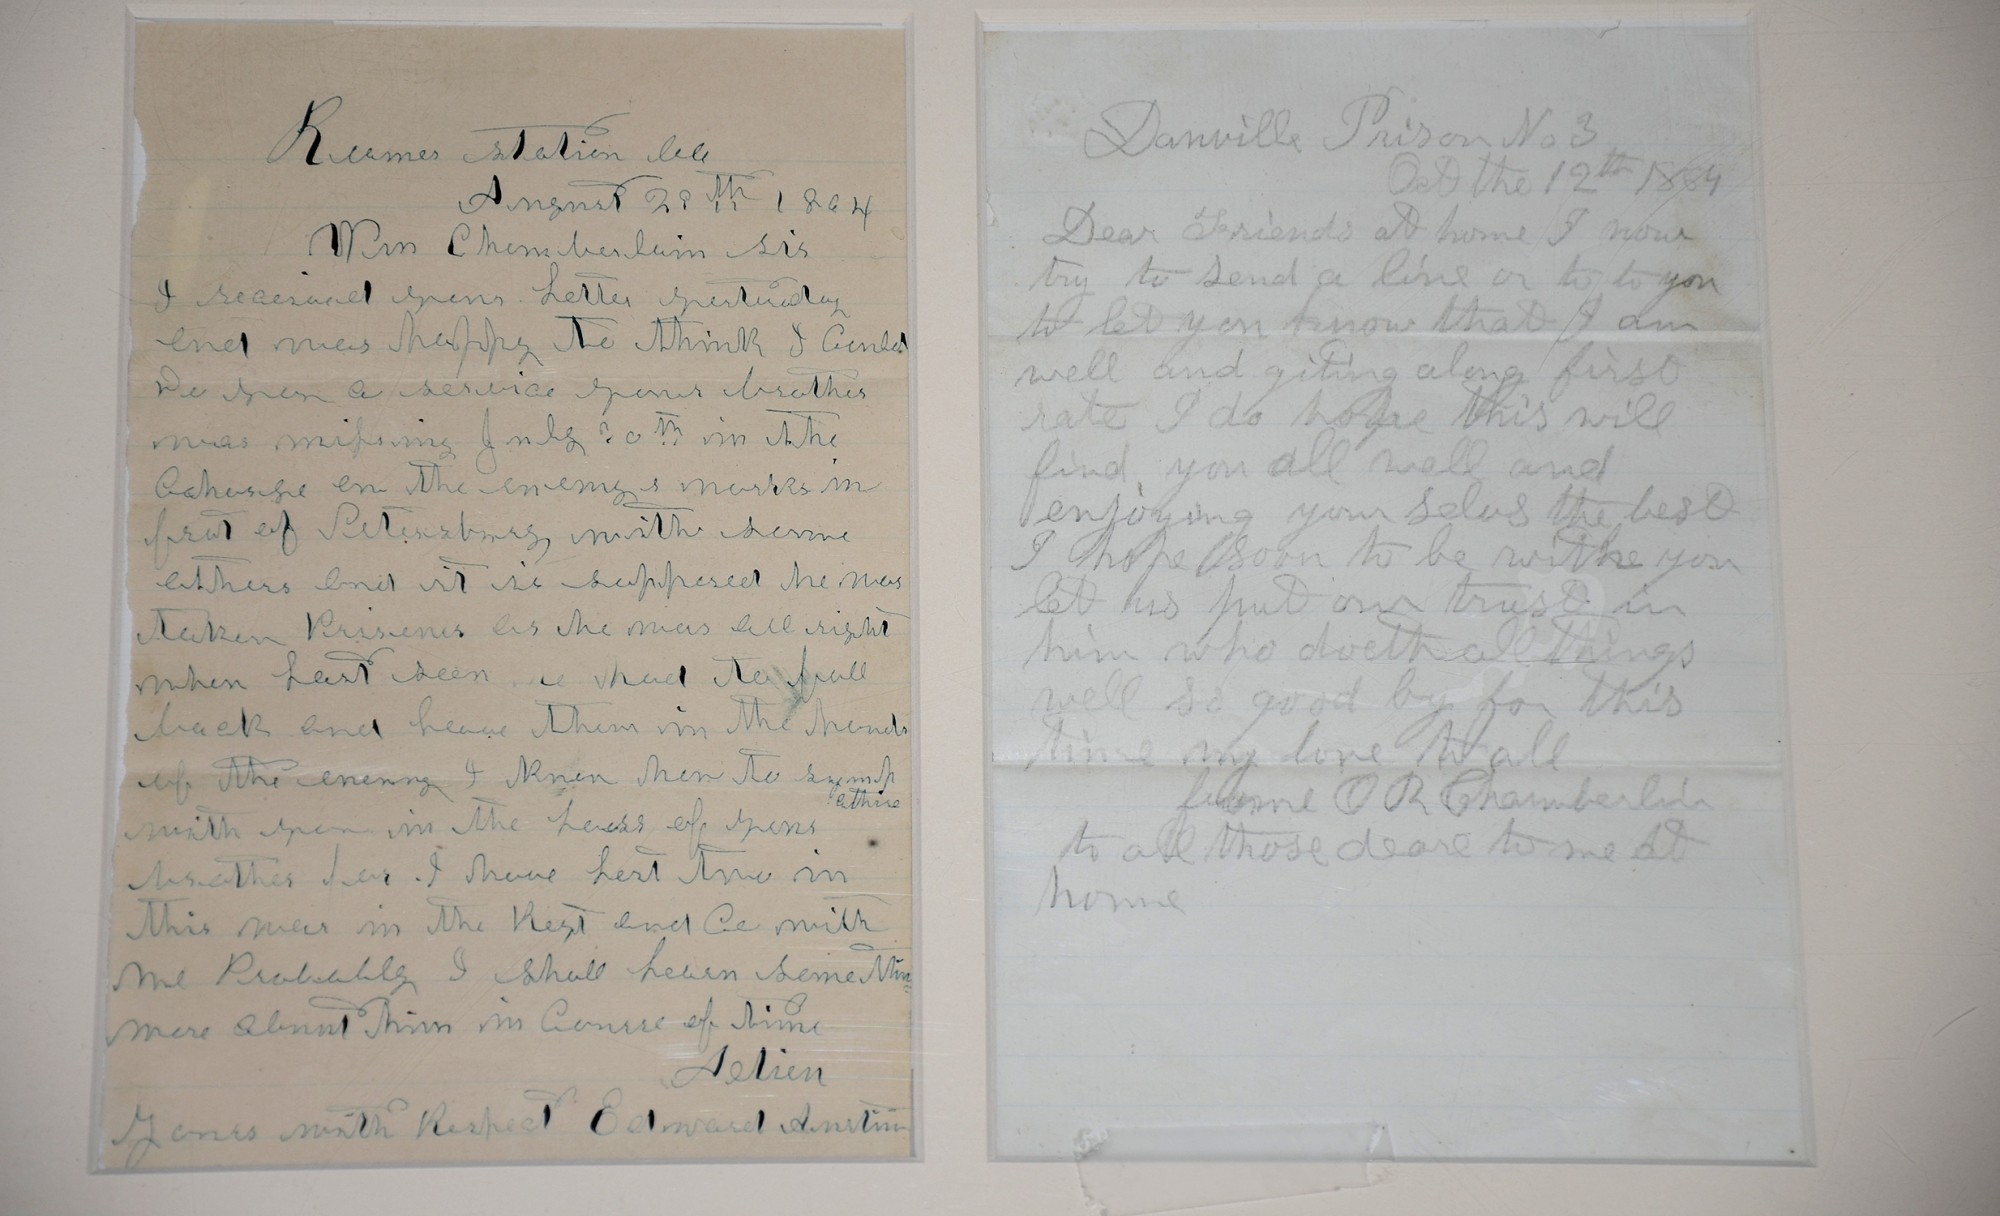 Reames station Va
August 29th 1864
Wm Chamberlain sir
I received your letter yesturday
and was happy to think I Could
Do you a service your brother
was missing July 30th in the
Charge on the enemys works in
frot of Petersburg with some
others and it is supposed he was
taken Prisoner as he was all right
when last seen we had to fall
back and leave them in the hands
of the enemy I know how to symp
athise
with you in the loss of your
brother for I have lost two in
this war in the Regt and Co with
me Probably I shall hearn some thin
more about him in Course of time
Yours with Respect Edward Austin
Danville Prison No 3
Oct the 12th 1864
Dear Friends at home I now
try to send a line or to to you
to let you know that I am
well and giting along first
rate I do hope this will
find you all well and
enjoying your selvs the best
I hope soon to be withe you
let us put our trust in
him who doeth all things
well so good by for this
time my love to all
frome O R Chamberlin
to all those deare to me at
home